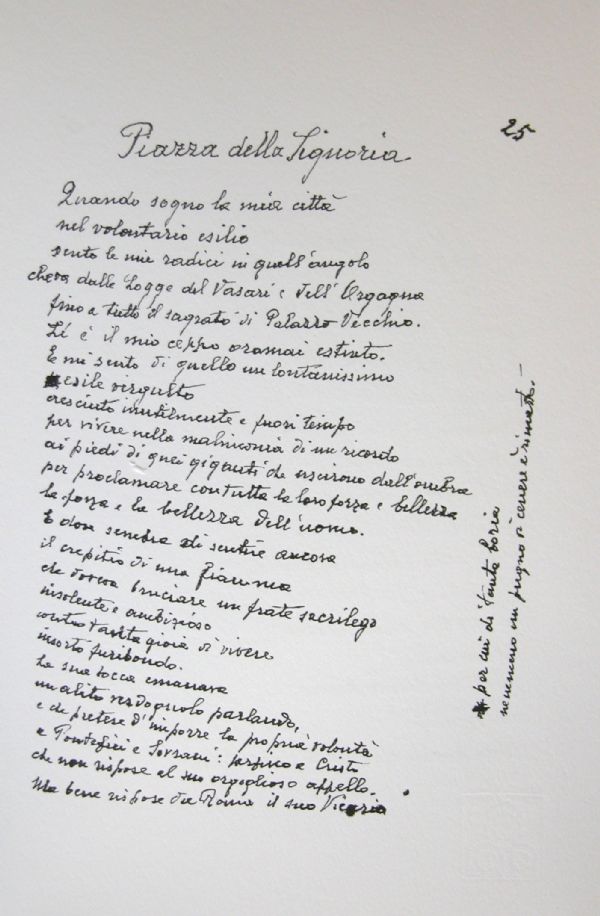 25
Piazza della Signoria
Quando sogno la mia città
nel volontario esilio
sento le mie radici in quell'angolo
che va dalle Logge del Vasari e dell'Orgagna
fino a tutto il sagrato di Palazzo Vecchio.
Lí è il mio ceppo oramai estinto.
E mi sento di quello un lontanissimo
esile virgulto
cresciuto inutilmente e fuori tempo
per vivere nella malinconia di un ricordo
ai piedi di quei giganti che uscirono dall'ombra
per proclamare con tutta la loro forza e bellezza
la forza e la bellezza dell'uomo.
E dove sembra di sentire ancora
il crepitio di una fiamma
che doveva bruciare un frate sacrilego
insolente e ambizioso
contro tanta gioia di vivere
insorto furibondo.
La sua bocca emanava
un alito verdognolo parlando,
e che pretese d'imporre la propria volontà
a Pontefici e Sovrani: perfino a Cristo
che non rispose al suo orgoglioso appello.
Ma bene rispose da Roma il suo Vicario
per cui di tanta boria
nemmeno un pugno di cenere è rimasto.